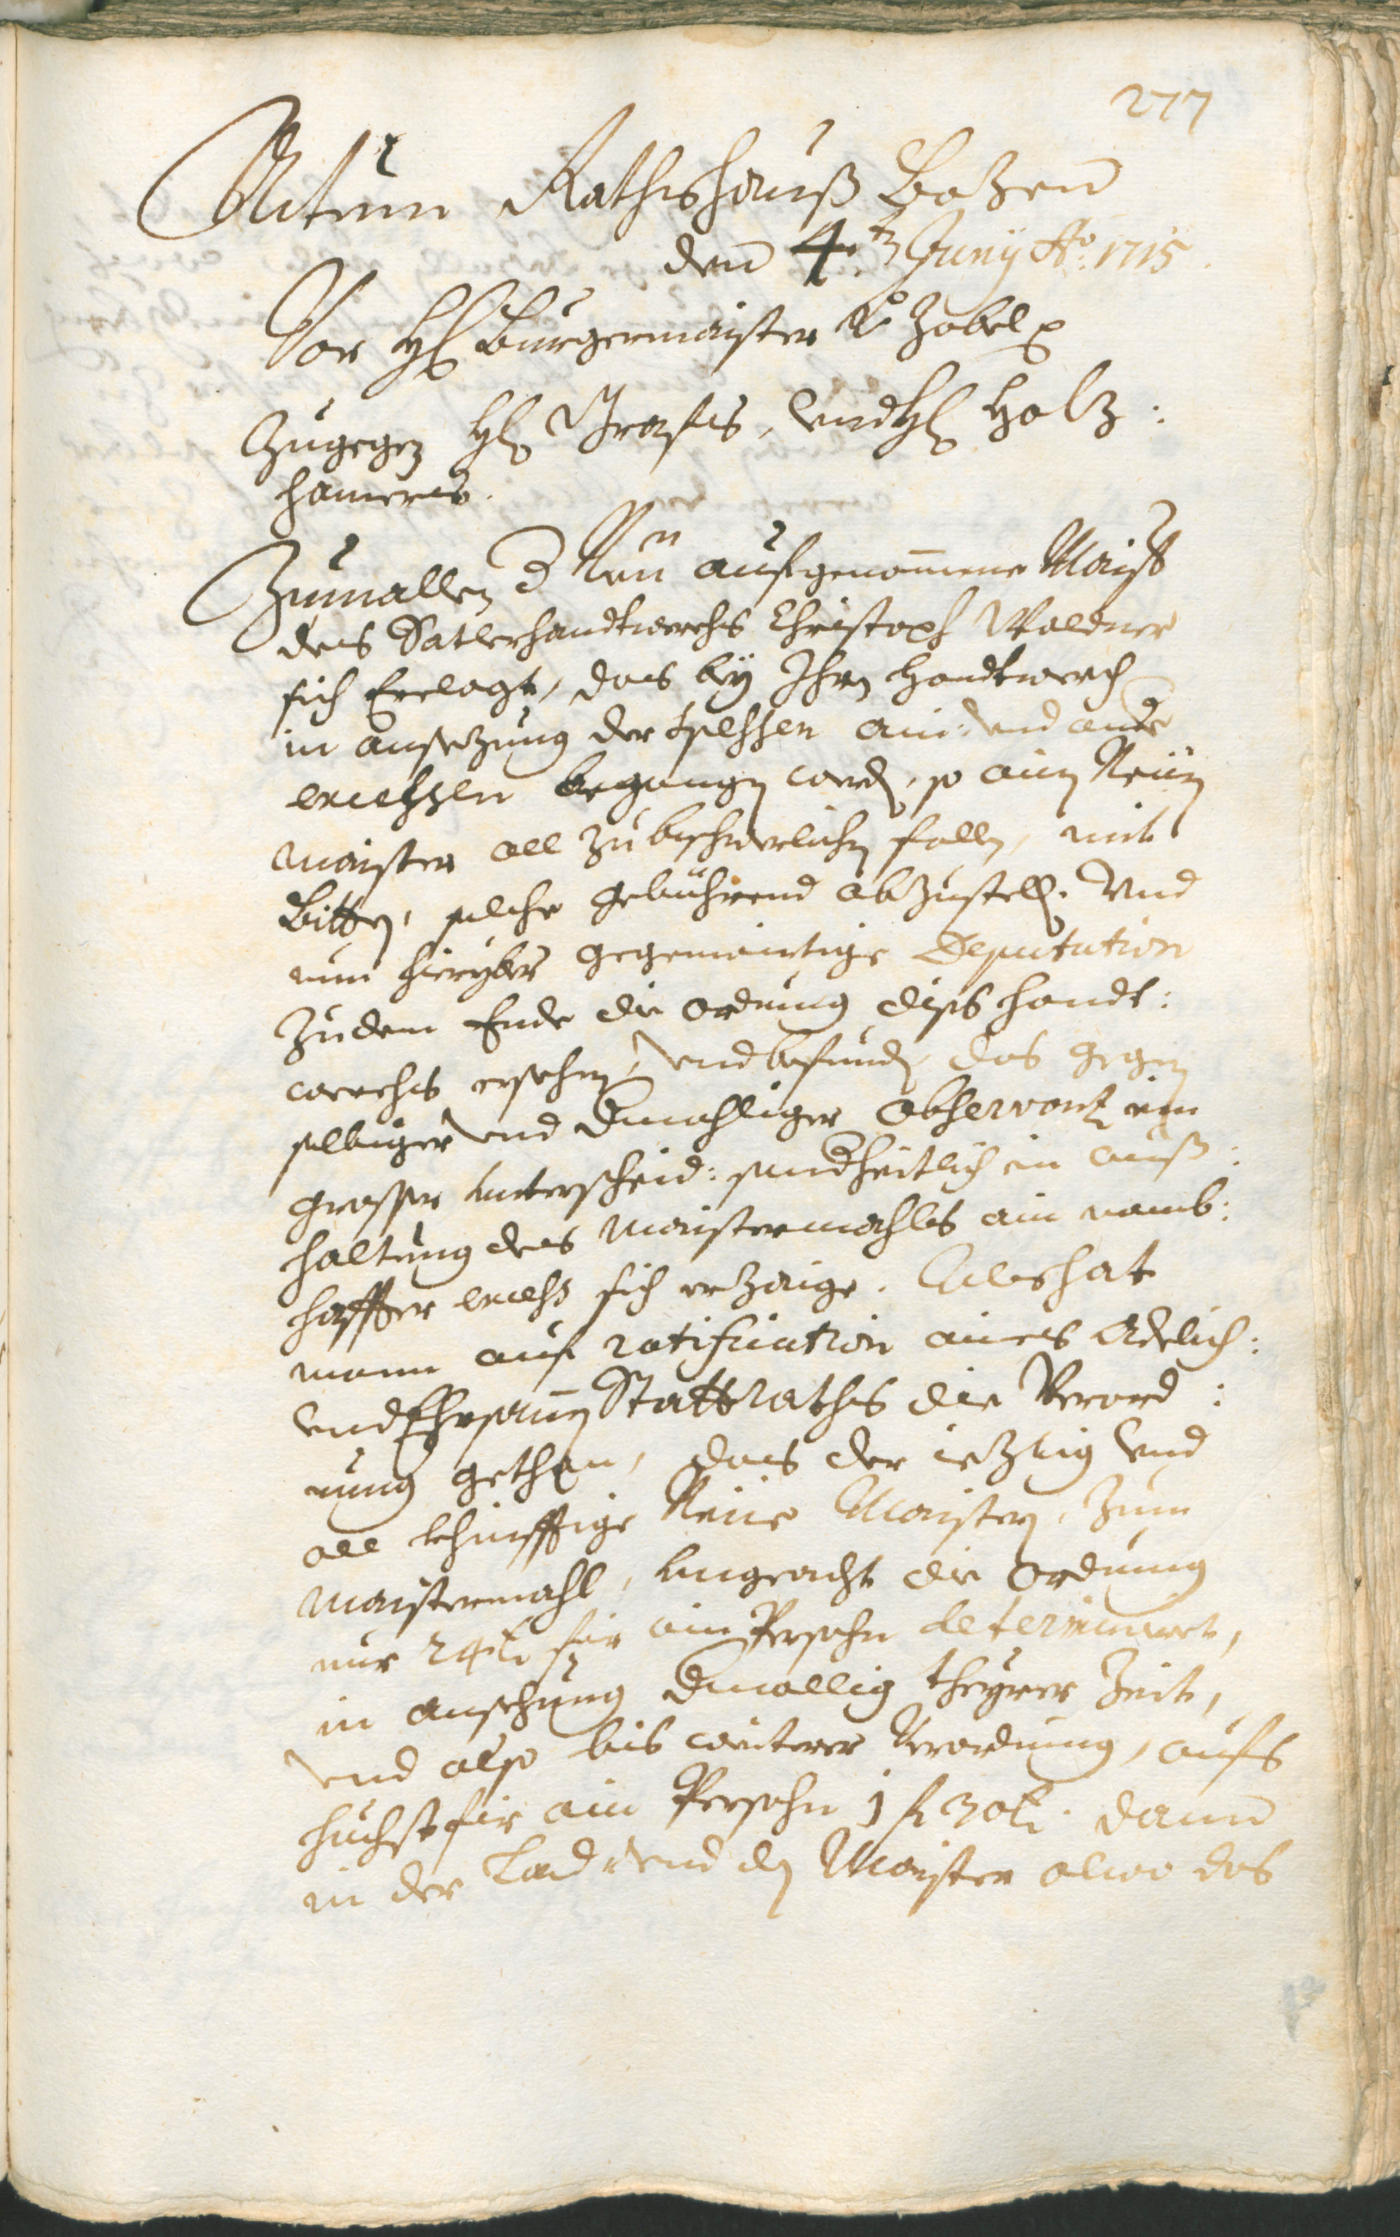 277
Actum Rathshauß Bozen
den 4.ten Juny Ao: 1715.
Vor H: Burgermaister v: Zobel
Zugegen H: Grafis, und H: Holz:
hameris.
Zumallen d Neu aufgenommene Maist
des Satlerhandtwerchs Christoph Waldner
sich Erclagt, das bey Ihrn Handtwerch
in ansezung der Speßen ain: und ander
excessen begangen word, so ainem Neuen
maister all zu beschwerlichen fallen, mit
Bitten, solche gebührend abzustell. Und
nun hieryber gegenwirtige Deputation
zu dem Ende die ordnung diß handt:
werchs ersehen, und befunden, das gegen
selbiger und dmahliger observanz ein
grosser unterschid: sondheitlich in auß:
haltung des Maistermahls ain namb:
haffter excess sich erzaige. Als hat
mann auf ratification aines Adelich:
und Ehrsamen Stattraths die Verord:
nung gethan, das der iezig und
all khünfftige Neue Maister, zum
Maistermahl, ungeacht die Ordnung
nur 24 k für ain Persohn determiniert,
in ansehung dmallig theyrer Zeit,
und also bis weiterer Verordnung, aufs
huchst für ain Persohn 1 f 30 k. dann
in der Lad und den Maister alwo das